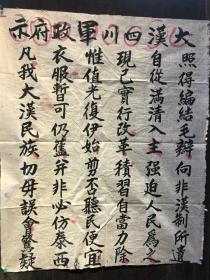 大漢四川軍政府示
照得編結毛辮向非漢制所遺
自從滿清入主強迫人民為之
現已實行改革積習自當力除
惟值光復伊始剪否聽民便宜
衣服暫可仍舊並非必仿泰西
凡我大漢民族切勿誤會驚疑